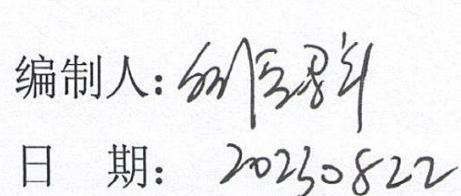 编制人:
日 期: 20230822